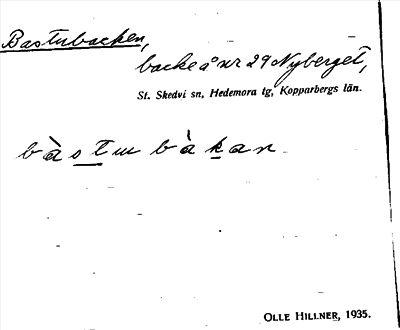 Bastubacken,
backe å nr 29 Nyberget,
St. Skedvi sn, Hedemora tg, Kopparbergs län.
bàstɯbàkan
OLLE HILLNER, 1935.